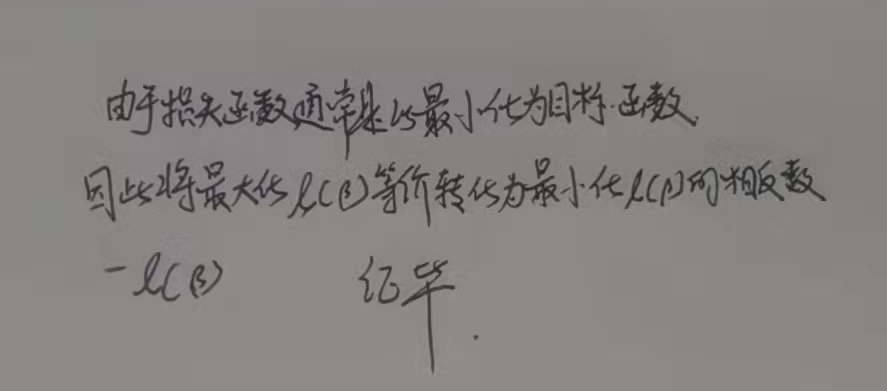 由于损失函数通常是以最小化为目标函数.
因此将最大化 ℓ(β) 等价转化为最小化 ℓ(β) 的相反数
-ℓ(β) 证毕.